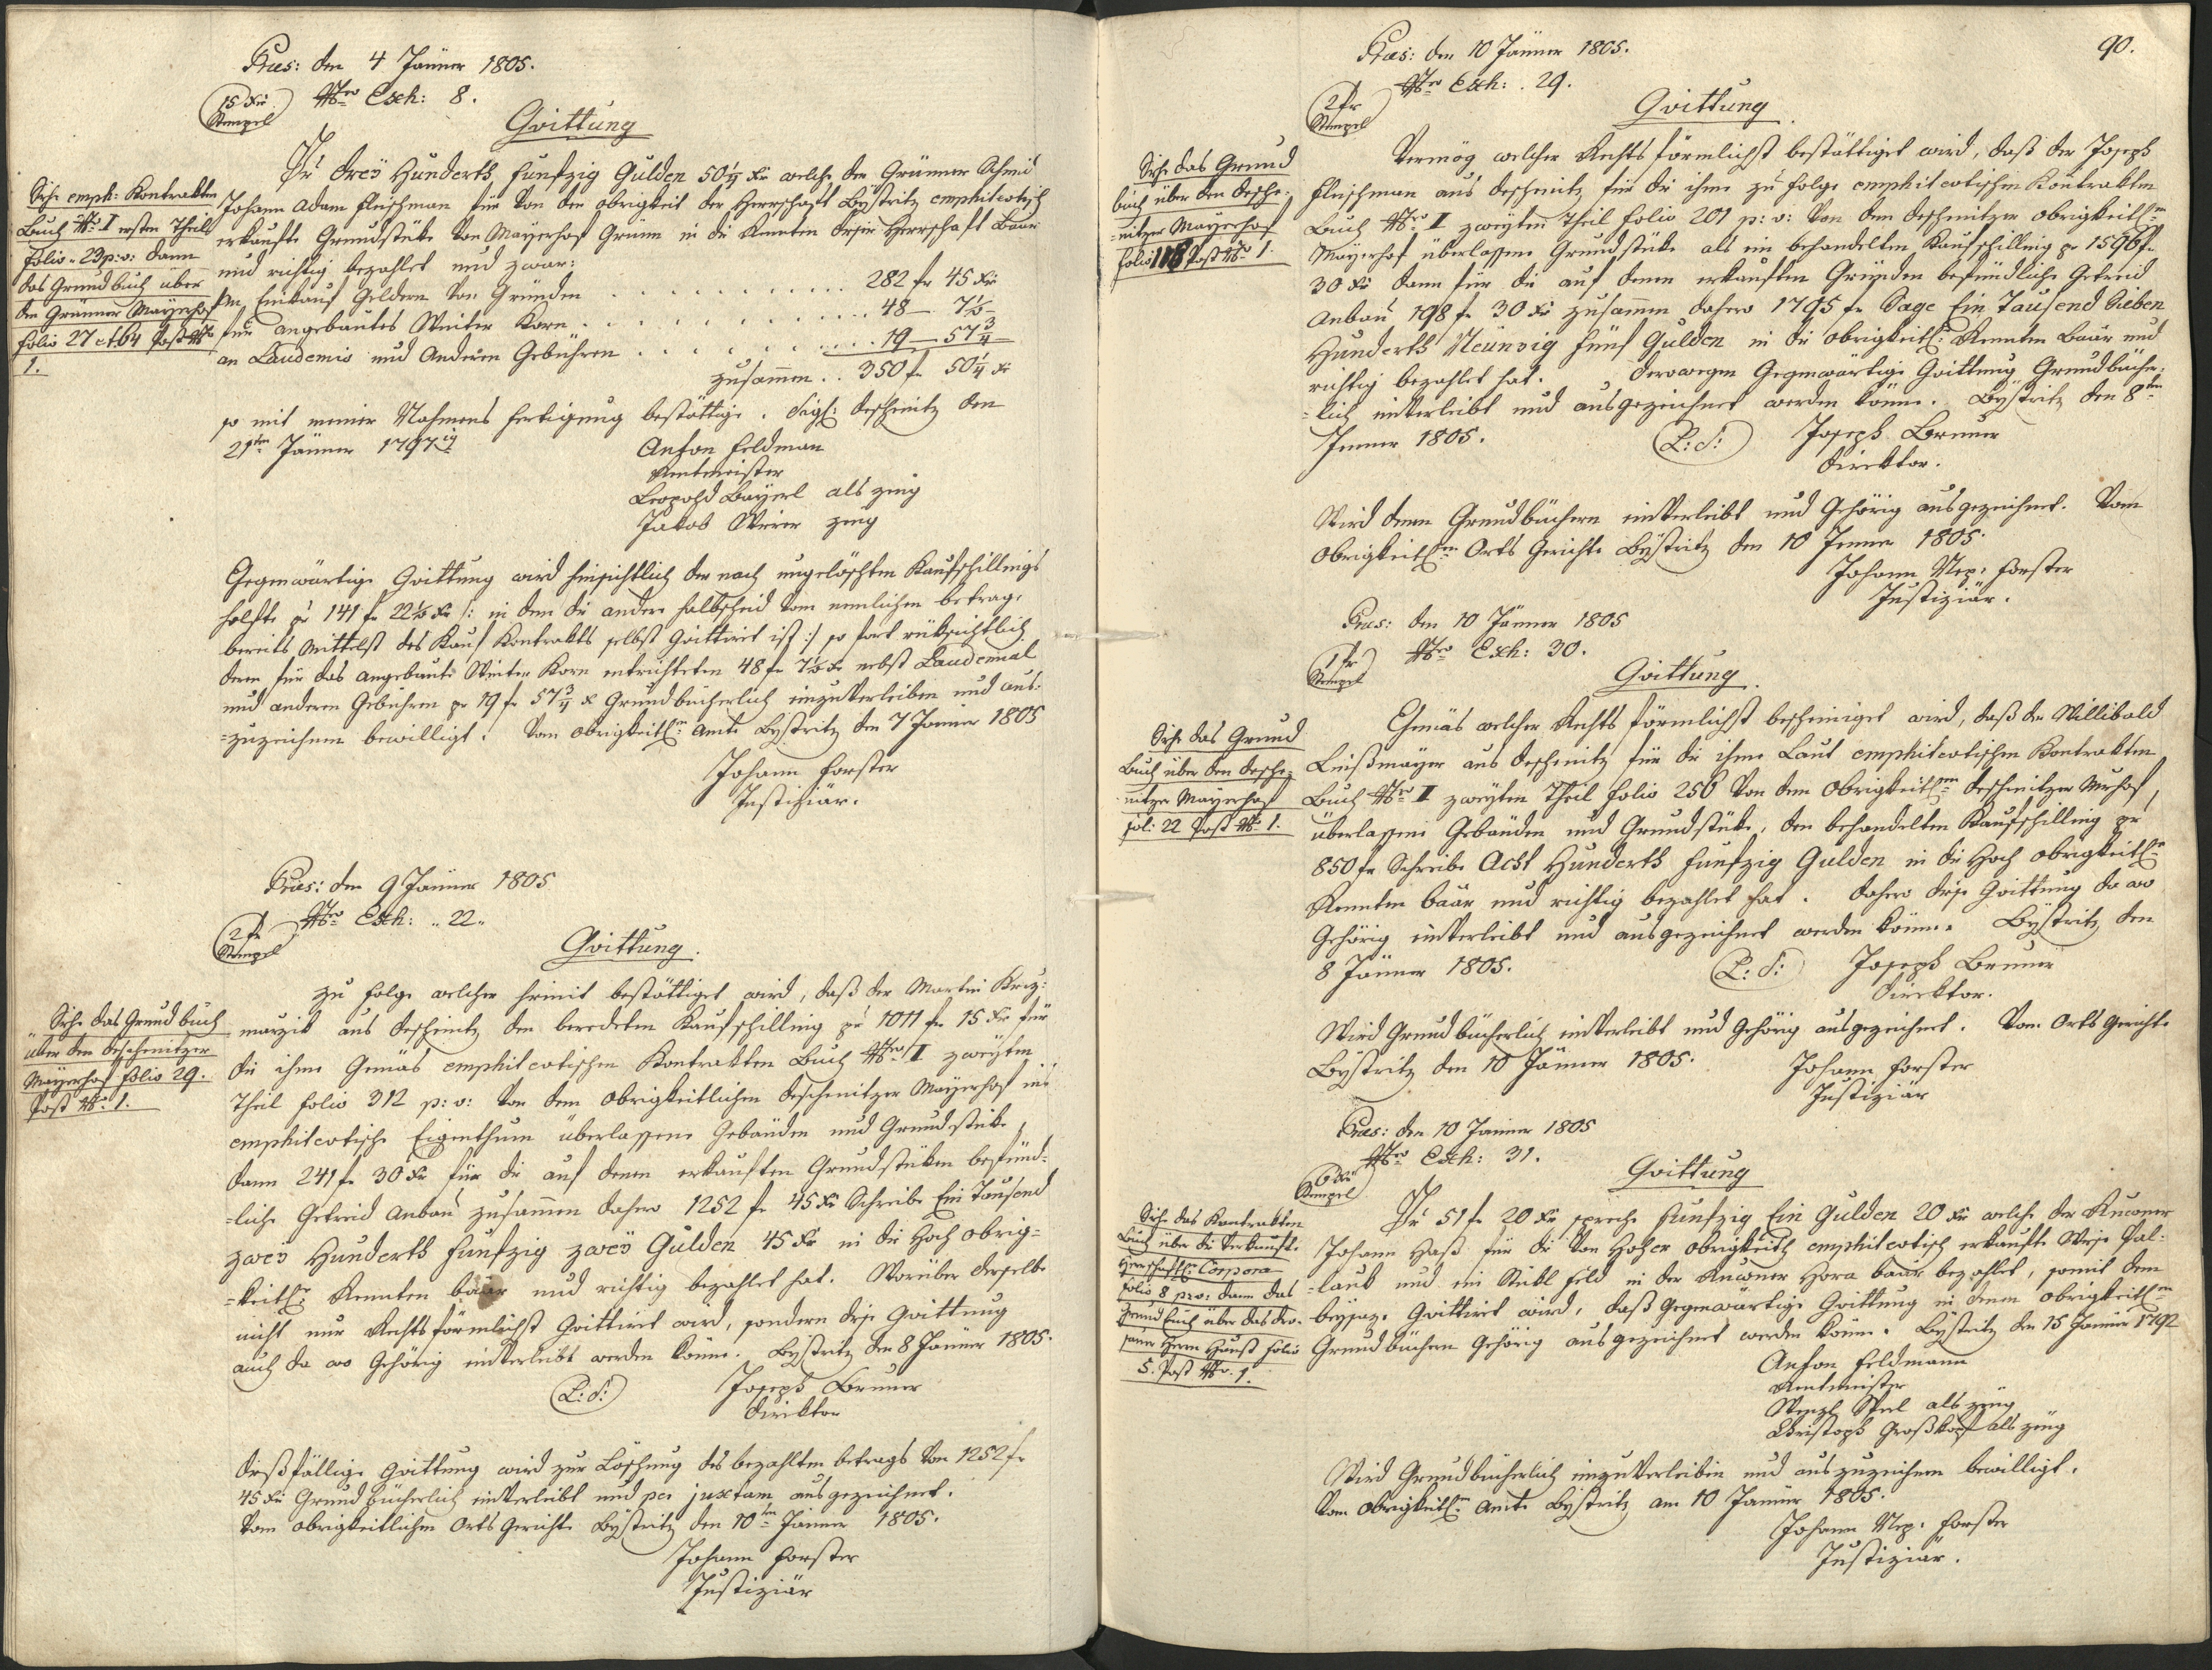 Præs: den 4 Jänner 1805.
15 Kr Stempel
Nro Exh: 8.
Quittung
Siehe emph: Kontrakten
Buch Nro I ersten Theils
Folio 29 p: v: dann
das Grundbuch über
den Grünner Mayerhof
folio 27 et 64 Post Nro
1.
Pr drey Hunderth Funfzig Gulden 50¼ Kr welche der Grünner Schmid
Johann Adam Fleischman für von der Obrigkeit der Herrschaft Bystritz emphiteotisch
erkaufte Grundstüke von Mayerhof Grünn in die Renten dieser Herrschaft Baar
und richtig bezahlet und zwar:
An Einkauf Geldern von Gründen . . . . . . . . 282 fr 45 Kr
für angebautes Winter Korn . . . . . . . . 48 — 7½ —
an Laudemio und Anderen Gebühren . . . . . . . . 19 — 57¾ —
zusammen . . 350 fr 50¼ Kr
so mit meiner Nahmens Fertigung bestättige. Sigl: Deschenitz den
21ten Jänner 1797
Anton Feldman
Rentmeister
Leopold Bayerl als zeug
Jakob Weier zeug
Gegenwärtige Quittung wird hinsichtlich der noch ungelöschten Kaufschillings
Helfte pr 141 fr 22½ Kr /: in dem die andere Halbscheid vom nemlichen betrage
bereits Mittelst des Kauf Kontrakts selbst Quittiret ist :/ so fort rüksichtlich
deren für das angebaute Winter Korn entrichteten 48 fr 7½ Kr nebst Laudemial
und anderen Gebühren pr 19 fr 57¾ Kr Grundbücherlich einzuverleiben und aus-
=zuzeichnen bewilligt. Vom Obrigkeitlen Amte Bystritz den 7 Jänner 1805
Johann Forster
Justiziär.
Præs: den 9 Jänner 1805
2 fr Stempel
Nro Exh: 22.
Quittung.
Siehe das Grundbuch
über den Deschenitzer
Mayerhof folio 29.
Post Nro 1.
Zu folge welcher hiemit bestättiget wird, daß der Martin Krez-
marzik aus Deschenitz den beredeten Kaufschilling pr 1011 fr 15 Kr für
die ihme Gemäs emphiteotischen Kontrakten Buch Nro I zweyten
Theil folio 312 p: v: von dem Obrigkeitlichen Deschenitzer Mayerhof ins
emphiteotische Eigenthum überlassene Gebäuden und Grundstüke,
dann 241 fr 30 Kr für die auf denen erkauften Grundstüken befind-
=liche Getreid Anbau zusammen dahero 1252 fr 45 Kr Schreibe Ein Tausend
zwey Hunderth Funfzig zwey Gulden 45 Kr in die Hoch Obrig-
=keitle Renten baar und richtig bezahlet hat. Worüber derselbe
nicht nur Rechtsförmlichst Quittiret wird, sondern diese Quittung
auch da wo Gehörig einverleibt werden könne. Bystritz den 8 Jänner 1805.
L: S:
Joseph Bruner
Direktor
Dießfällige Quittung wird zur Löschung des bezahlten betrags von 1252 fr
45 Kr Grundbücherlich einverleibt und per juxtam ausgezeichnet.
Vom Obrigkeitlichen Orts Gerichte Bystritz den 10ten Jänner 1805.
Johann Forster
Justiziär
90.
Præs: den 10 Jänner 1805.
2 fr Stempel
Nro Exh: 29.
Quittung.
Siehe das Grund
buch über den Desche-
=nitzer Mayerhof
folio 118 Post Nro 1.
Vermög welcher Rechtsförmlichst bestättiget wird, daß der Joseph
Fleischman aus Deschenitz für die ihme zu folge emphiteotischen Kontrakten
Buch Nro II zweyten Theil folio 201 p: v: von dem Deschenitzer Obrigkeitlen
Mayerhof überlassene Grundstüke als ein behandelten Kaufschilling pr 1596 fr
30 Kr dann für die auf denen erkauften Gründen befindliche Getreid
Anbau 198 fr 30 Kr zusammen dahero 1795 fr Sage Ein Tausend Sieben
Hunderth Neunzig Fünf Gulden in die Obrigkeitle Renten Baar und
richtig bezahlet hat. Derowegen Gegenwärtige Quittung Grundbücher-
=lich einverleibt und ausgezeichnet werden könne. Bystritz den 8ten
Jenner 1805.
L: S:
Joseph Bruner
Direktor.
Wird denen Grundbüchern einverleibt und Gehörig ausgezeichnet. Vom
Obrigkeitlen Orts Gerichte Bystritz den 10 Jenner 1805.
Johann Nep: Forster
Justiziär.
Præs: den 10 Jänner 1805
1 fr Stempel
Nro Exh: 30.
Quittung.
Siehe das Grund
Buch über den Desche-
nitzer Mayerhof
fol: 22 Post Nro 1.
Gemäs welcher Rechtsförmlichst bescheiniget wird, daß der Willibald
Leißmayer aus Deschenitz für die ihme Laut emphiteotischen Kontrakten
Buch Nro II zweyten Theil folio 256 von dem Obrigkeitlen Deschenitzer Mrhof
überlassene Gebäuden und Grundstüke, den behandelten Kaufschilling pr
850 fr Schreibe Acht Hunderth Funfzig Gulden in die Hoch Obrigkeitle
Renten baar und richtig bezahlet hat. Dahero diese Quittung da wo
Gehörig einverleibt und ausgezeichnet werden könne. Bystritz den
8 Jänner 1805.
L: S:
Joseph Bruner
Direktor.
Wird Grundbücherlich einverleibt und Gehörig ausgezeichnet. Vom Orts Gerichte
Bystritz den 10 Jänner 1805.
Johann Forster
Justiziär
Præs: den 10 Jänner 1805
6 Kr Stempel
Nro Exh: 31.
Quittung
Siehe das Kontrakten
Buch über die verkaufte
Herrschaftle Corpora
folio 8 p: v: dann das
Grundbuch über das
Post Nro 1.
Pr 51 fr 20 Kr spreche Funfzig Ein Gulden 20 Kr welche der
Johann Haß für die von Hoher Obrigkeith emphiteotisch erkaufte Wiese Pal-
=lauk und ein Stükl Feld in der Hora baar bezahlet, somit dem
beysaze Quittiret wird, daß Gegenwärtige Quittung in denen Obrigkeitlen
Grundbüchern Gehörig ausgezeichnet werden könne. Bystritz den 15 Jänner 1792
Anton Feldmann
Rentmeister
Wenzl als zeug
Christoph Großkopf als zeug
Wird Grundbücherlich einzuverleiben und auszuzeichnen bewilligt.
Vom Obrigkeitlen Amte Bystritz am 10 Jänner 1805.
Johann Nep: Forster
Justiziär.